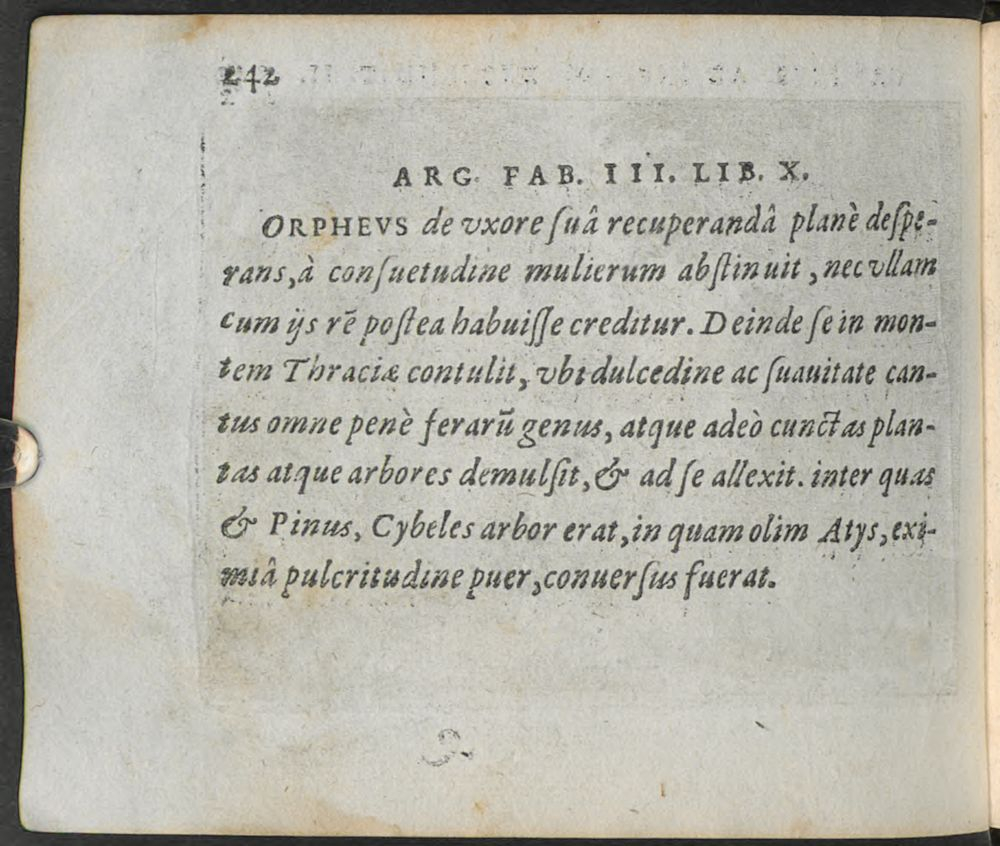 242
ARG. FAB. III. LIB. X.
ORPHEVS de vxore ſuâ recuperandâ planè deſpe-
rans, à conſuetudine mulierum abſtinuit, nec vllam
cum ijs rē poſtea habuiſſe creditur. Deinde ſe in mon-
tem Thraciæ contulit, vbi dulcedine ac ſuauitate can-
tus omne penè ferarū genus, atque adeò cunctas plan-
tas atque arbores demulſit, & ad ſe allexit. inter quas
& Pinus, Cybeles arbor erat, in quam olim Atys, exi-
miâ pulcritudine puer, conuerſus fuerat.